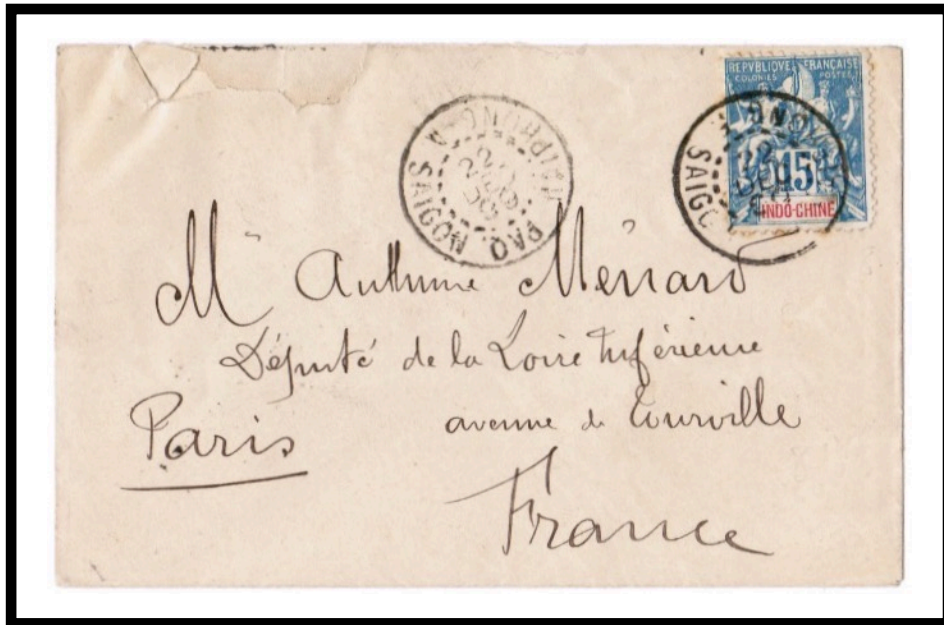 REPUBLIQUE FRANÇAISE
COLONIES POSTES
15
INDO-CHINE
SAIGO
HAIPHONG A
PAQ. SAIGON
22
M Anthime Ménard
Député de la Loire Inférieure
avenue de Tourville
Paris
France